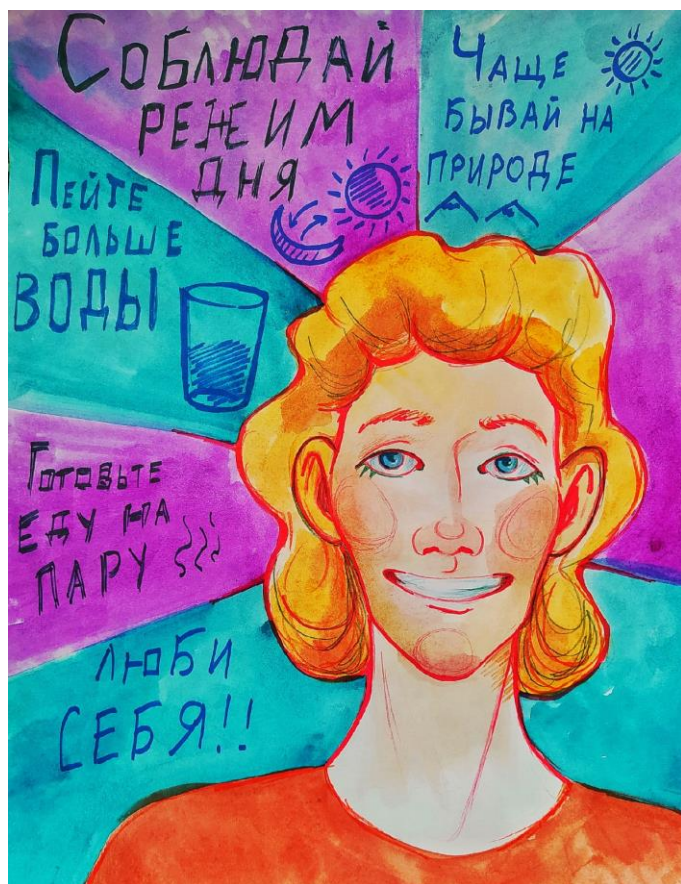 Соблюдай
режим
дня
Чаще
бывай на
природе
Пейте
больше
воды
Готовьте
еду на
пару
люби
себя!!